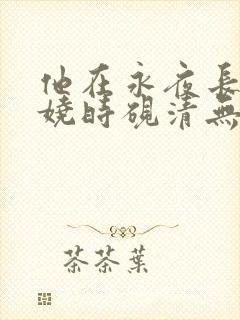 他在永夜長
嬈時硯清無
茶茶葉